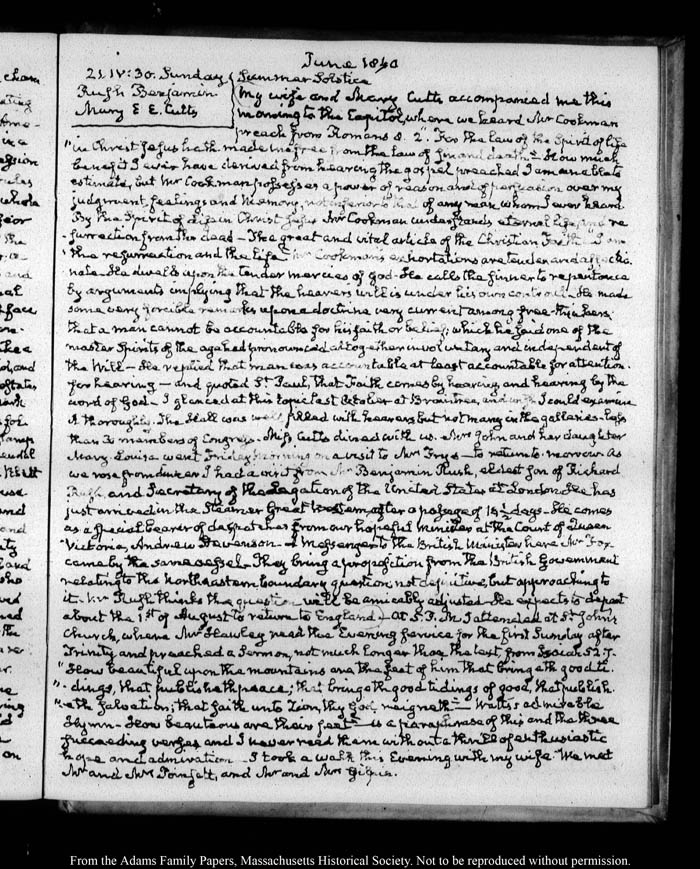 June 1840
21. IV:30. Sunday Summer Solstice
Rush Benjamin
Mary E E. Cutts
My wife and Mary Cutts accompanied me this
morning to the Capitol, where we heard Mr Cookman
preach from Romans 8. 2. "For the law of the Spirit of life
"in Christ Jesus hath made me free from the law of sin and death" How much
benefit I ever have derived from hearing the gospel preached I am unable to
estimate, but Mr Cookman possesses a power of reason and of persuasion over my
judgment, feelings and Memory, not inferior to that of any man whom I ever heard.
By the Spirit of life in Christ Jesus Mr Cookman understands eternal life, and re
surrection from the dead – The great and vital article of the Christian Faith – I am
the resurrection and the life – Mr Cookman's exhortations are tender and affectio
nate. He dwells upon the tender mercies of God – He calls the sinner to repentance
by arguments implying that the hearers will is under his own controul – He made
some very forcible remarks upon a doctrine very current among free-thinkers
that a man cannot be accountable for his faith or belief, which he said one of the
master Spirits of the age had pronounced altogether involuntary and independent of
the Will – He replied that man was accountable at least accountable for attention –
for hearing – and quoted St Paul, that Faith comes by hearing, and hearing by the
word of God – I glanced at this topic last October at Braintree, and wish I could examine
it thoroughly. The Hall was well filled with hearers but not many in the galleries – less
than 30 members of Congress – Miss Cutts dined with us. Mrs John and her daughter
Mary Louisa went Friday morning on a visit to Mrs Frye's – to return to morrow. As
we rose from dinner I had a visit from Mr Benjamin Rush, eldest son of Richard
Rush, and Secretary of the Legation of the United States at London – He has
just arrived in the Steamer Great Western, after a passage of 15½ days – He comes
as a special bearer of despatches from our hopeful Minister at the Court of Queen
Victoria, Andrew Stevenson – A Messenger to the British Minister here Mr Fox
came by the same vessel – They bring a proposition from the British Government
relating to the North eastern boundary question, not definitive, but approaching to
it. Mr Rush thinks the question will be amicably adjusted – He expects to depart
about the 1st of August to return to England – At 5. P.M. I attended at St John's
Church, where Mr Hawley read the Evening service for the first Sunday after
Trinity and preached a Sermon, not much longer than the last, from Isaiah 52. 7.
"How beautiful upon the mountains are the feet of him that bringeth good ti.
"dings, that publisheth peace; that bringeth good tidings of good, that publish
"eth salvation; that saith unto Zion, thy God reigneth" – Watts's admirable
Hymn – How beauteous are their feet – is a paraphrase of this and the three
succeeding verses and I never read them without a thrill of enthusiastic
hope and admiration – I took a walk this Evening with my wife. We met
Mr and Mrs Poinsett, and Mr and Mrs Gilpin.
From the Adams Family Papers, Massachusetts Historical Society. Not to be reproduced without permission.